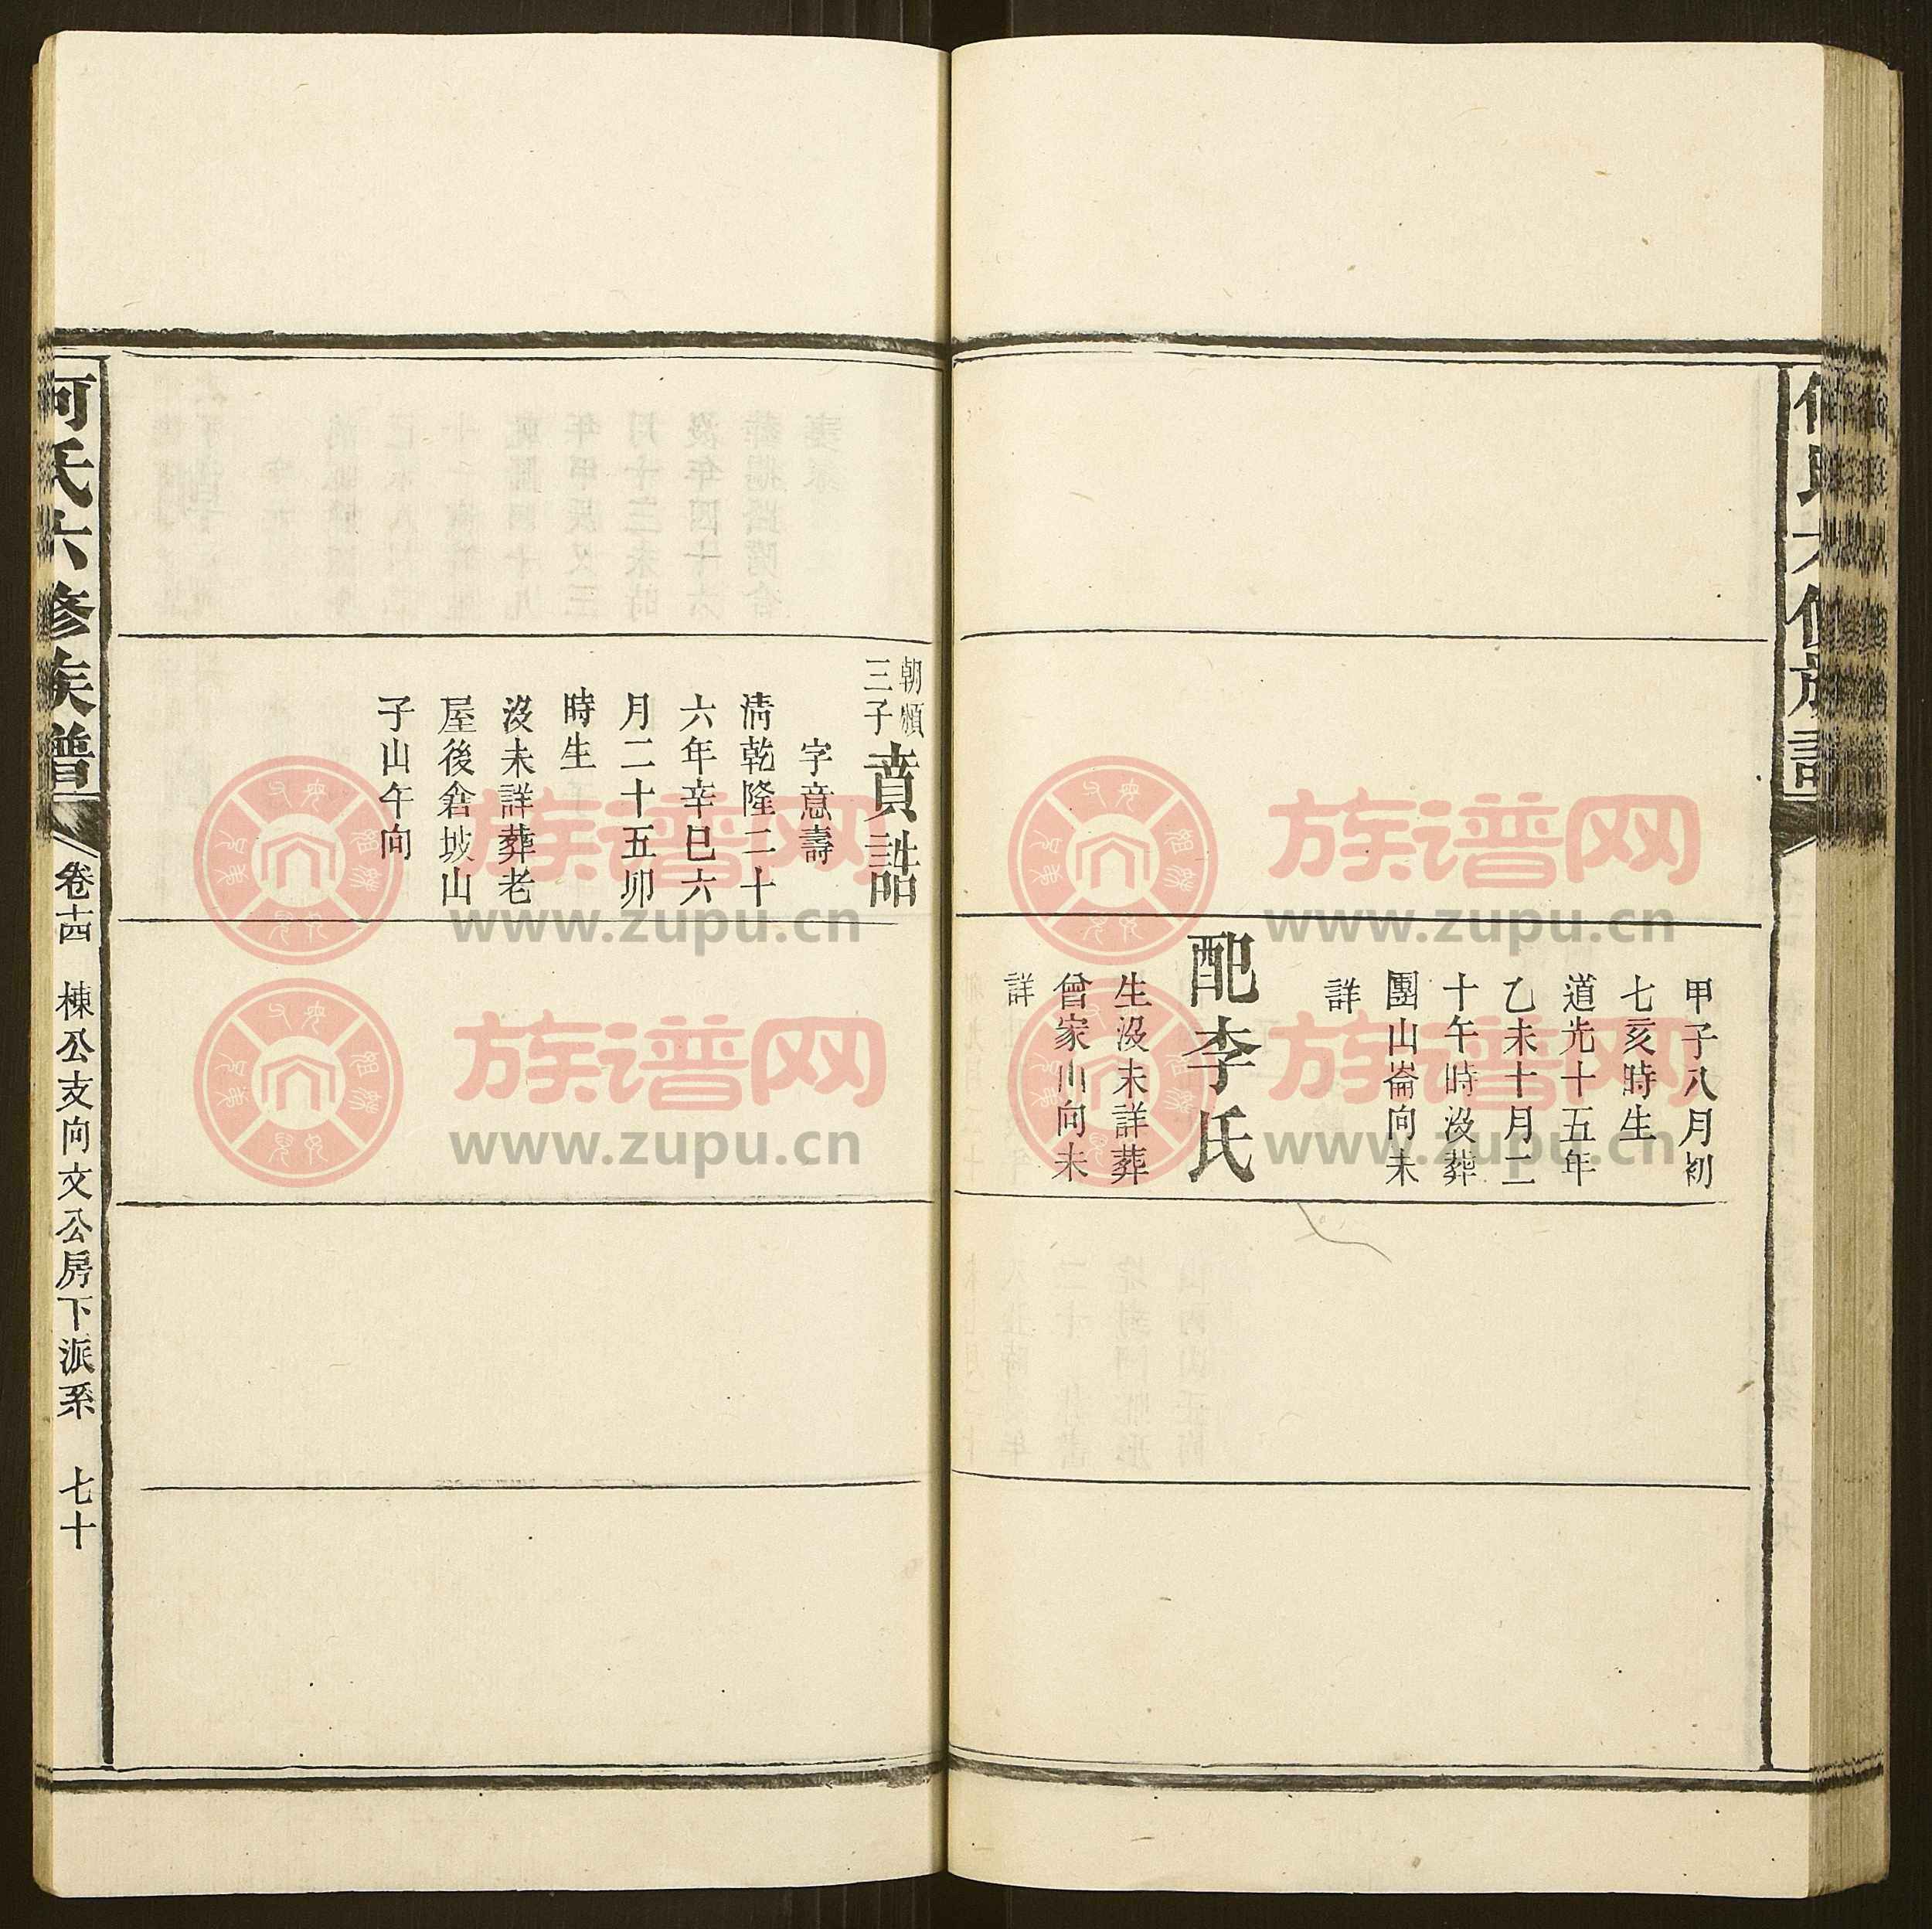 甲子八月初
七亥時生
道光十五年
乙未十月二
十午時沒葬
團山崙向未
詳
配李氏
生沒未詳葬
曾家山向未
詳
朝順
三子
賁誥
字意壽
清乾隆二十
六年辛巳六
月二十五卯
時生
沒未詳葬老
屋後倉坡山
子山午向
何氏六修族譜
卷十四 棟公支向文公房下派系 七十
族谱网
www.zupu.cn
族谱网
www.zupu.cn
族谱网
www.zupu.cn
族谱网
www.zupu.cn